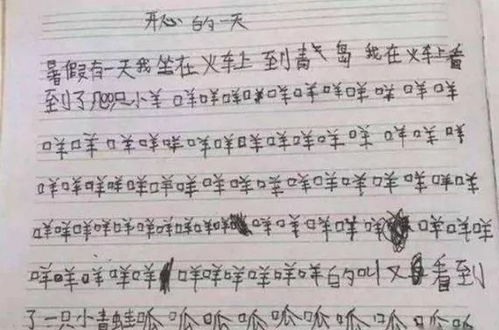 开心的一天
暑假有一天我坐在火车上到青岛 我在火车上看
到了几只小羊 咩咩咩咩咩咩咩咩咩 咩咩
咩咩 咩咩咩咩咩咩咩咩咩咩咩 咩咩 咩咩
咩咩咩咩咩咩咩咩咩咩咩咩咩咩咩咩咩咩
咩咩咩咩咩咩咩咩 咩咩咩咩咩 咩咩咩
咩咩咩咩咩 咩咩咩咩咩咩的叫又看到
了一只小青蛙呱呱呱呱呱呱呱呱呱